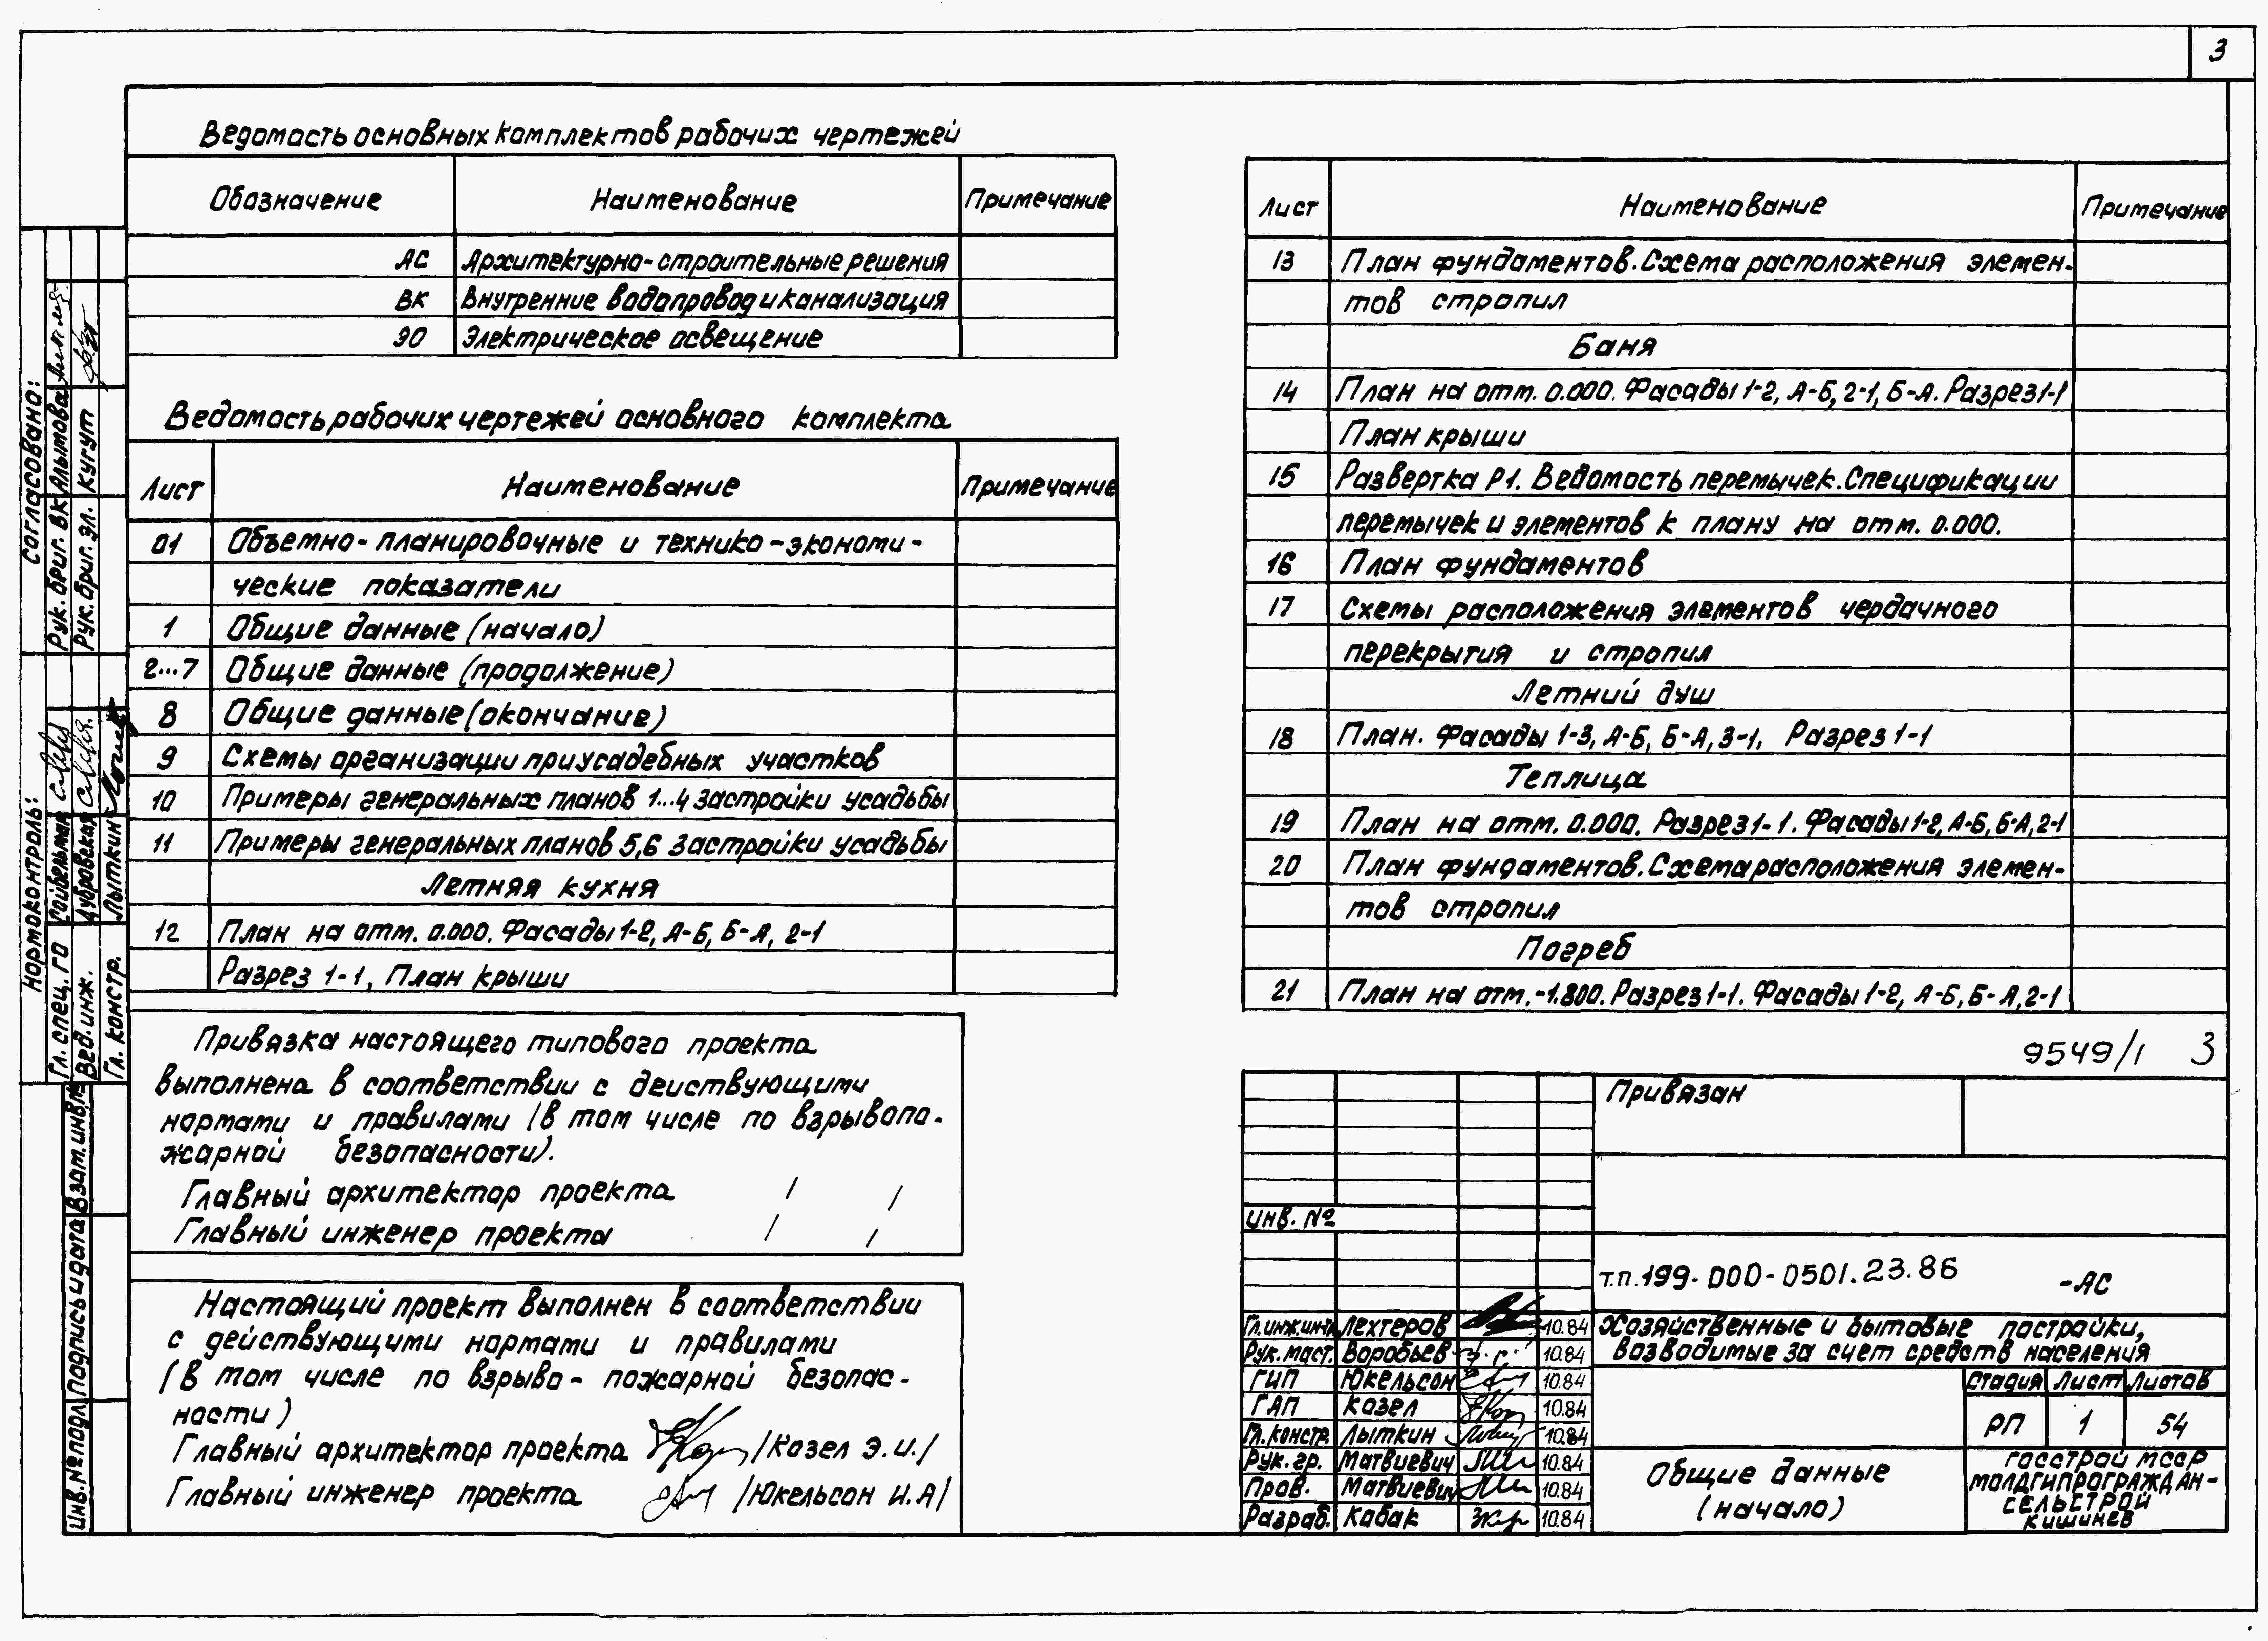 3
Ведомость основных комплектов рабочих чертежей
Обозначение Наименование Примечание
АС Архитектурно-строительные решения
ВК Внутренние водопровод и канализация
ЭО Электрическое освещение
Ведомость рабочих чертежей основного комплекта
Лист Наименование Примечание
01 Объемно-планировочные и технико-экономи-
ческие показатели
1 Общие данные (начало)
2...7 Общие данные (продолжение)
8 Общие данные (окончание)
9 Схемы организации приусадебных участков
10 Примеры генеральных планов 1...4 застройки усадьбы
11 Примеры генеральных планов 5,6 застройки усадьбы
Летняя кухня
12 План на отм. 0.000. Фасады 1-2, А-Б, Б-А, 2-1
Разрез 1-1, План крыши
Привязка настоящего типового проекта
выполнена в соответствии с действующими
нормами и правилами (в том числе по взрывопо-
жарной безопасности).
Главный архитектор проекта / /
Главный инженер проекта / /
Настоящий проект выполнен в соответствии
с действующими нормами и правилами
(в том числе по взрыво-пожарной безопас-
ности)
Главный архитектор проекта /Козел Э.И./
Главный инженер проекта /Юкельсон И.А/
Лист Наименование Примечание
13 План фундаментов. Схема расположения элемен-
тов стропил
Баня
14 План на отм. 0.000. Фасады 1-2, А-Б, 2-1, Б-А. Разрез 1-1
План крыши
15 Развертка Р1. Ведомость перемычек. Спецификации
перемычек и элементов к плану на отм. 0.000.
16 План фундаментов
17 Схемы расположения элементов чердачного
перекрытия и стропил
Летний душ
18 План. Фасады 1-3, А-Б, Б-А, 3-1, Разрез 1-1
Теплица
19 План на отм. 0.000. Разрез 1-1. Фасады 1-2, А-Б, Б-А, 2-1
20 План фундаментов. Схема расположения элемен-
тов стропил
Погреб
21 План на отм. -1.800. Разрез 1-1. Фасады 1-2, А-Б, Б-А, 2-1
9549/1 3
Привязан
инв. №
т.п. 199-000-0501.23.86 -АС
Гл.инж.инта Лехтеров 10.84
Рук. маст. Воробьев 10.84
ГИП Юкельсон 10.84
ГАП Козел 10.84
Гл. констр. Лыткин 10.84
Рук. гр. Матвиевич 10.84
Пров. Матвиевич 10.84
Разраб. Кабак 10.84
Хозяйственные и бытовые постройки,
возводимые за счет средств населения
Стадия Лист Листов
РП 1 54
Общие данные
(начало)
Госстрой МССР
МОЛДГИПРОГРАЖДАН-
СЕЛЬСТРОЙ
Кишинев
Согласовано:
Рук. бриг. ВК Алымова
Рук. бриг. эл. Кугут
Нормоконтроль:
Гл. спец. ГО Сойбельман
Вед. инж. Дубровская
Гл. констр. Лыткин
Инв.№ подл. Подпись и дата Взам. инв.№